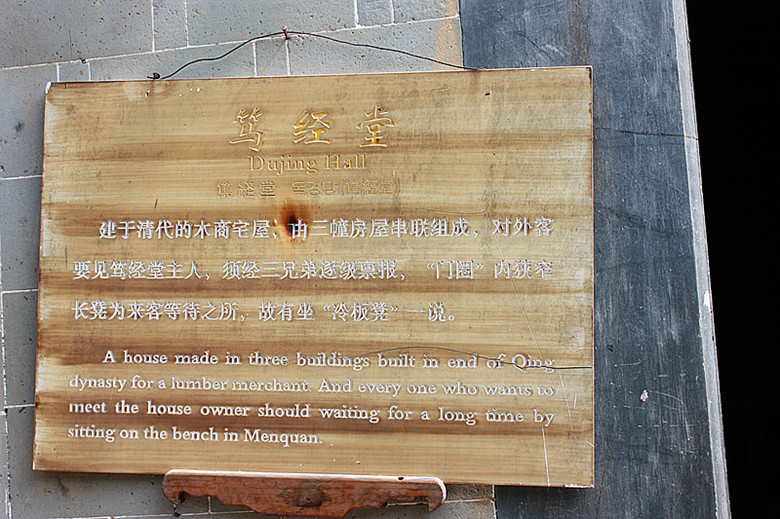 笃经堂
Dujing Hall
篤經堂 독경당(篤經堂)
建于清代的木商宅屋，由三幢房屋串联组成，对外客
要见笃经堂主人，须经三兄弟逐级禀报，“门圈”内狭窄
长凳为来客等待之所，故有坐“冷板凳”一说。
A house made in three buildings built in end of Qing
dynasty for a lumber merchant. And every one who wants to
meet the house owner should waiting for a long time by
sitting on the bench in Menquan.